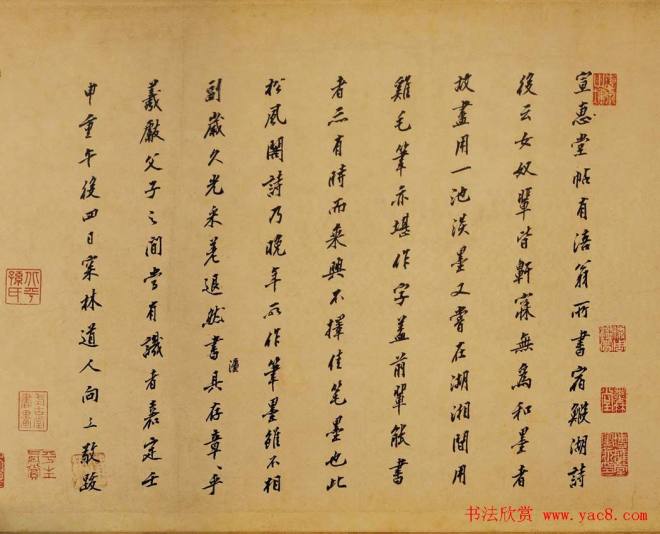 宣惠堂帖有涪翁所書宿鼷湖詩
後云女奴輩皆鼾寐無為和墨者
故盡用一池淡墨又嘗在湖湘間用
雞毛筆亦堪作字蓋前輩能書
者亦有時而乘興不擇佳笔墨也此
松風閣詩乃晚年所作筆墨雖不相
副歲久光采差退然書具存凜章〻乎
羲獻父子之間嘗有識者嘉定壬
申重午後四日寀林道人向〻敬跋
书法欣赏 www.yac8.com